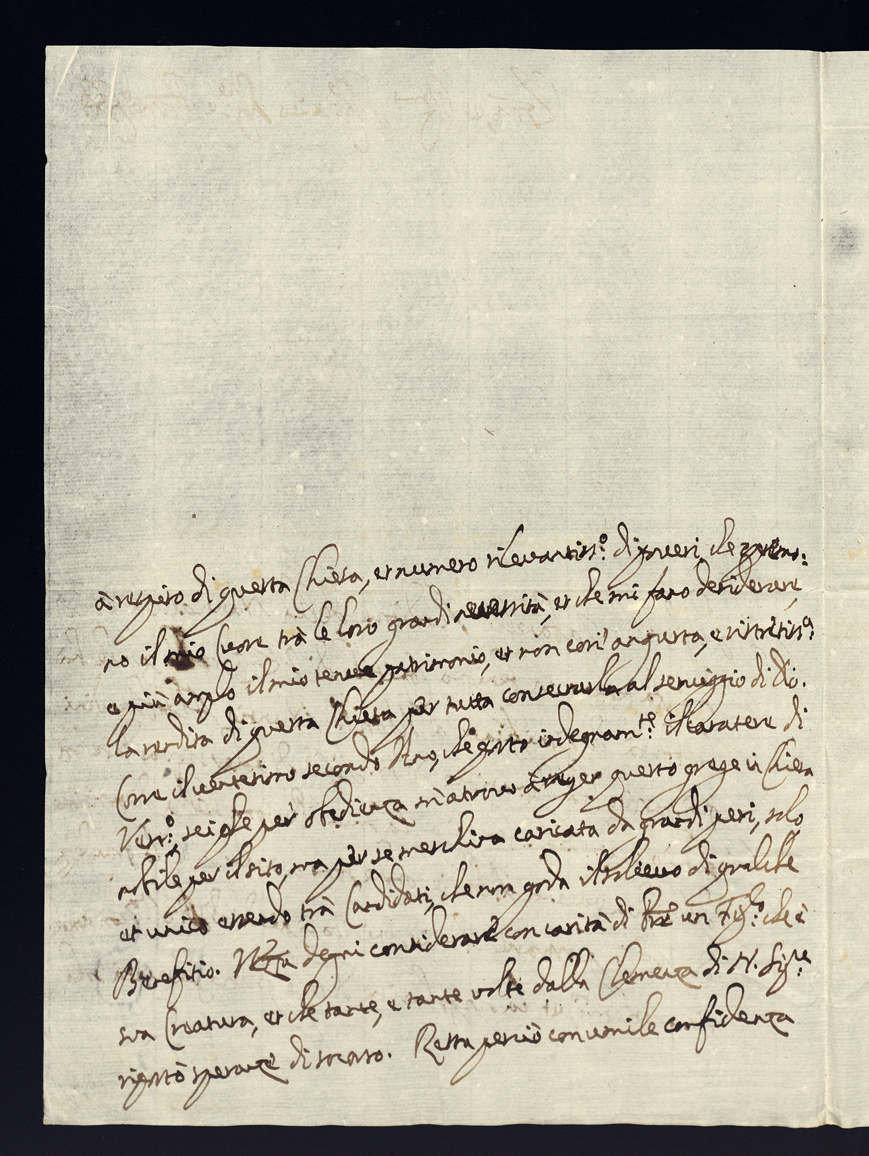 à respiro di questa Chiesa, et numero rilevantiss.º di poveri che
no il mio Cuore trà le loro grandi necessità, et che mi fano desiderare,
e più amplo il mio tenue patrimonio, et non cosi' angusta, e ristretiss.ª
la rendita di questa Chiesa per tutta consecrarla al servizio di Dio.
Corre il ventesimo secondo Ano, che porto indegnam.te il caratere di
Vesc.º, sei che per obedienza mi atrovo à reger questo grege in Chiesa
nobile per il sito, ma per se meschina caricata da grandi pesi, solo,
et unico essendo trà Candidati, che non goda il solievo di qualche
Benefitio. degni considerare con carità di un Figl.º che è
sua Creatura, et che tante, e tante volte dalla Clemenza di N. Sig.re
riportò speranze di socorso. Resta perciò con umile confidenza